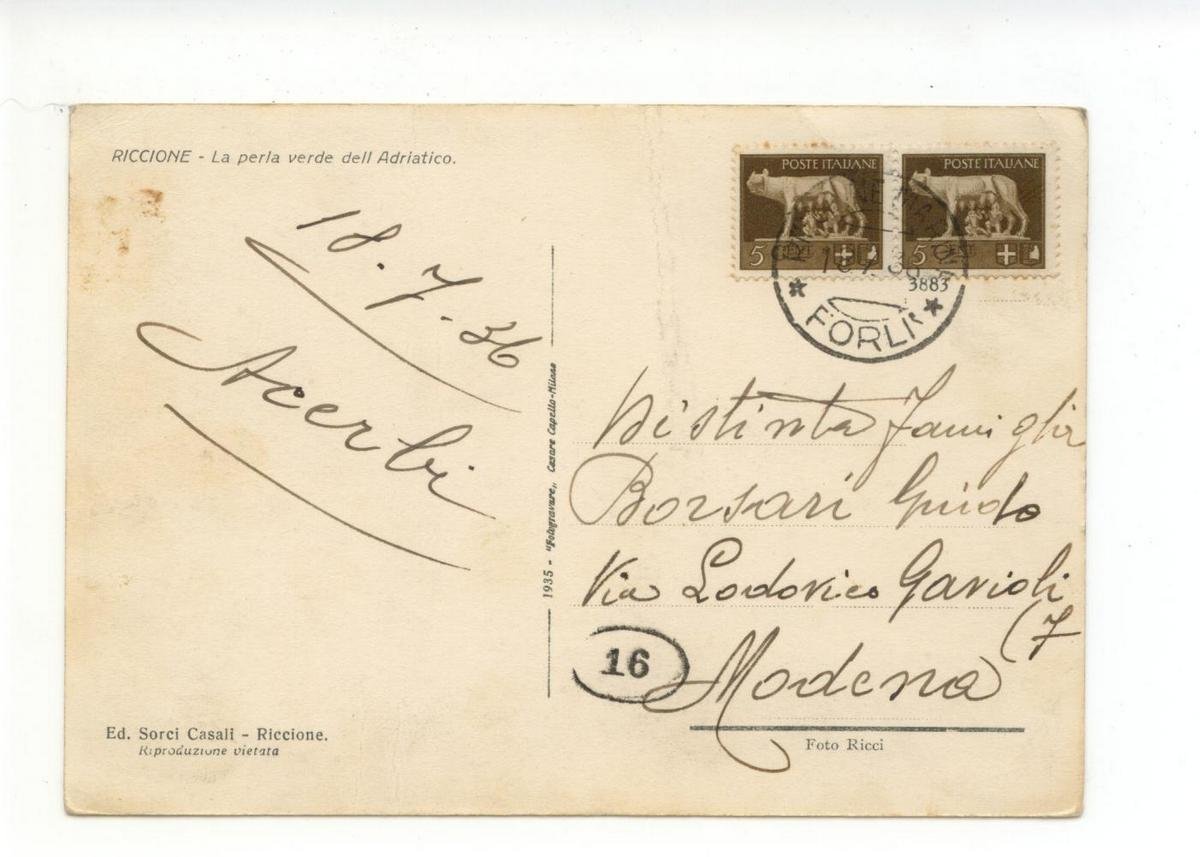 RICCIONE - La perla verde dell Adriatico.
18.7.36
Acerbi
Ed. Sorci Casali - Riccione.
Riproduzione vietata
1935 - "Fotogravure„ Cesare Capello-Milano
POSTE ITALIANE
5 CENT
POSTE ITALIANE
5 CENT
3883
FORLI'
Distinta Famiglia
Borsari Guido
Via Lodovico Gavioli
(7
16
Modena
Foto Ricci